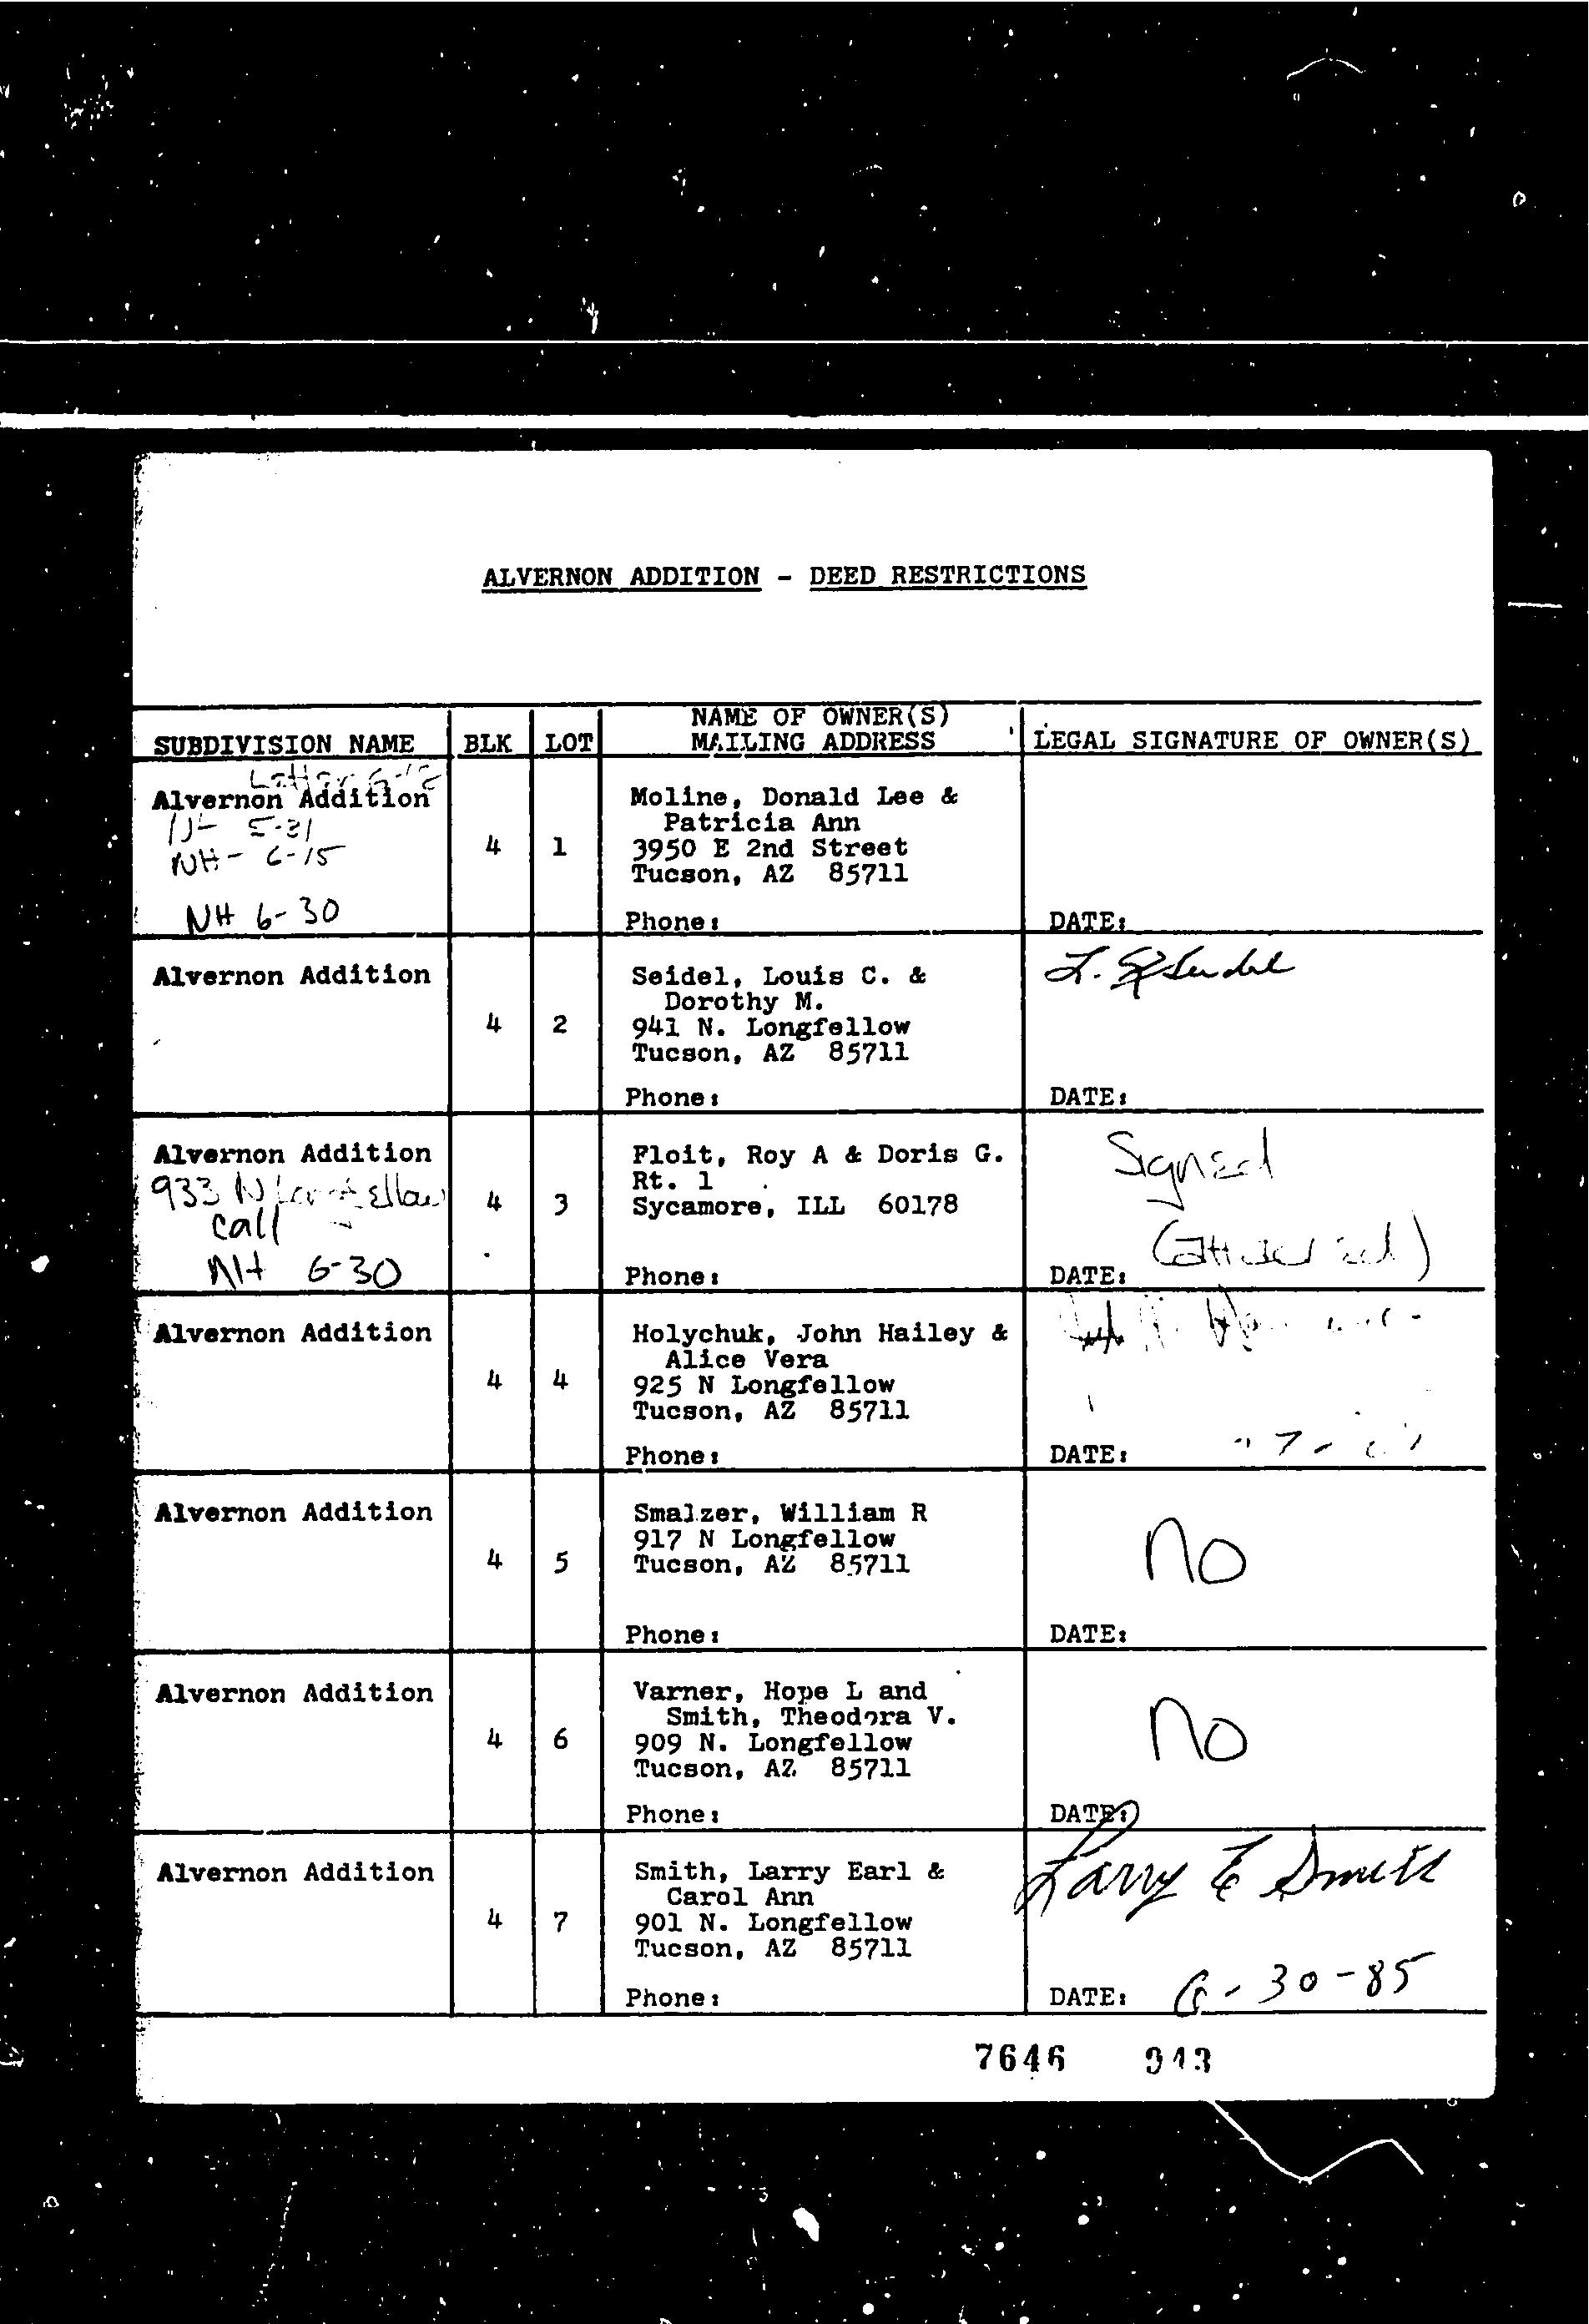 ALVERNON ADDITION - DEED RESTRICTIONS
SUBDIVISION NAME BLK LOT NAME OF OWNER(S) MAILING ADDRESS LEGAL SIGNATURE OF OWNER(S)
Letter
Alvernon Addition
5-31
NH - 6-15
NH 6-30
4 1
Moline, Donald Lee &
Patricia Ann
3950 E 2nd Street
Tucson, AZ 85711
Phone:
DATE:
Alvernon Addition
4 2
Seidel, Louis C. &
Dorothy M.
941 N. Longfellow
Tucson, AZ 85711
Phone:
L. Seidel
DATE:
Alvernon Addition
933 N Longfellow
call
NH 6-30
4 3
Floit, Roy A & Doris G.
Rt. 1
Sycamore, ILL 60178
Phone:
Signed
(attached)
DATE:
Alvernon Addition
4 4
Holychuk, John Hailey &
Alice Vera
925 N Longfellow
Tucson, AZ 85711
Phone:
DATE:
Alvernon Addition
4 5
Smalzer, William R
917 N Longfellow
Tucson, AZ 85711
Phone:
No
DATE:
Alvernon Addition
4 6
Varner, Hope L and
Smith, Theodora V.
909 N. Longfellow
Tucson, AZ 85711
Phone:
No
DATE:
Alvernon Addition
4 7
Smith, Larry Earl &
Carol Ann
901 N. Longfellow
Tucson, AZ 85711
Phone:
Larry E Smith
DATE: 6-30-85
7646 943